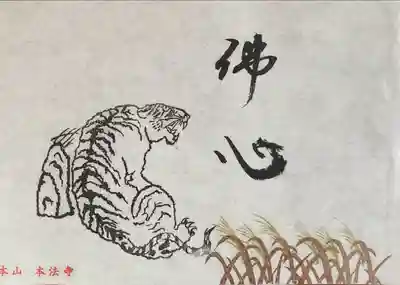 佛
心
本山 本法寺